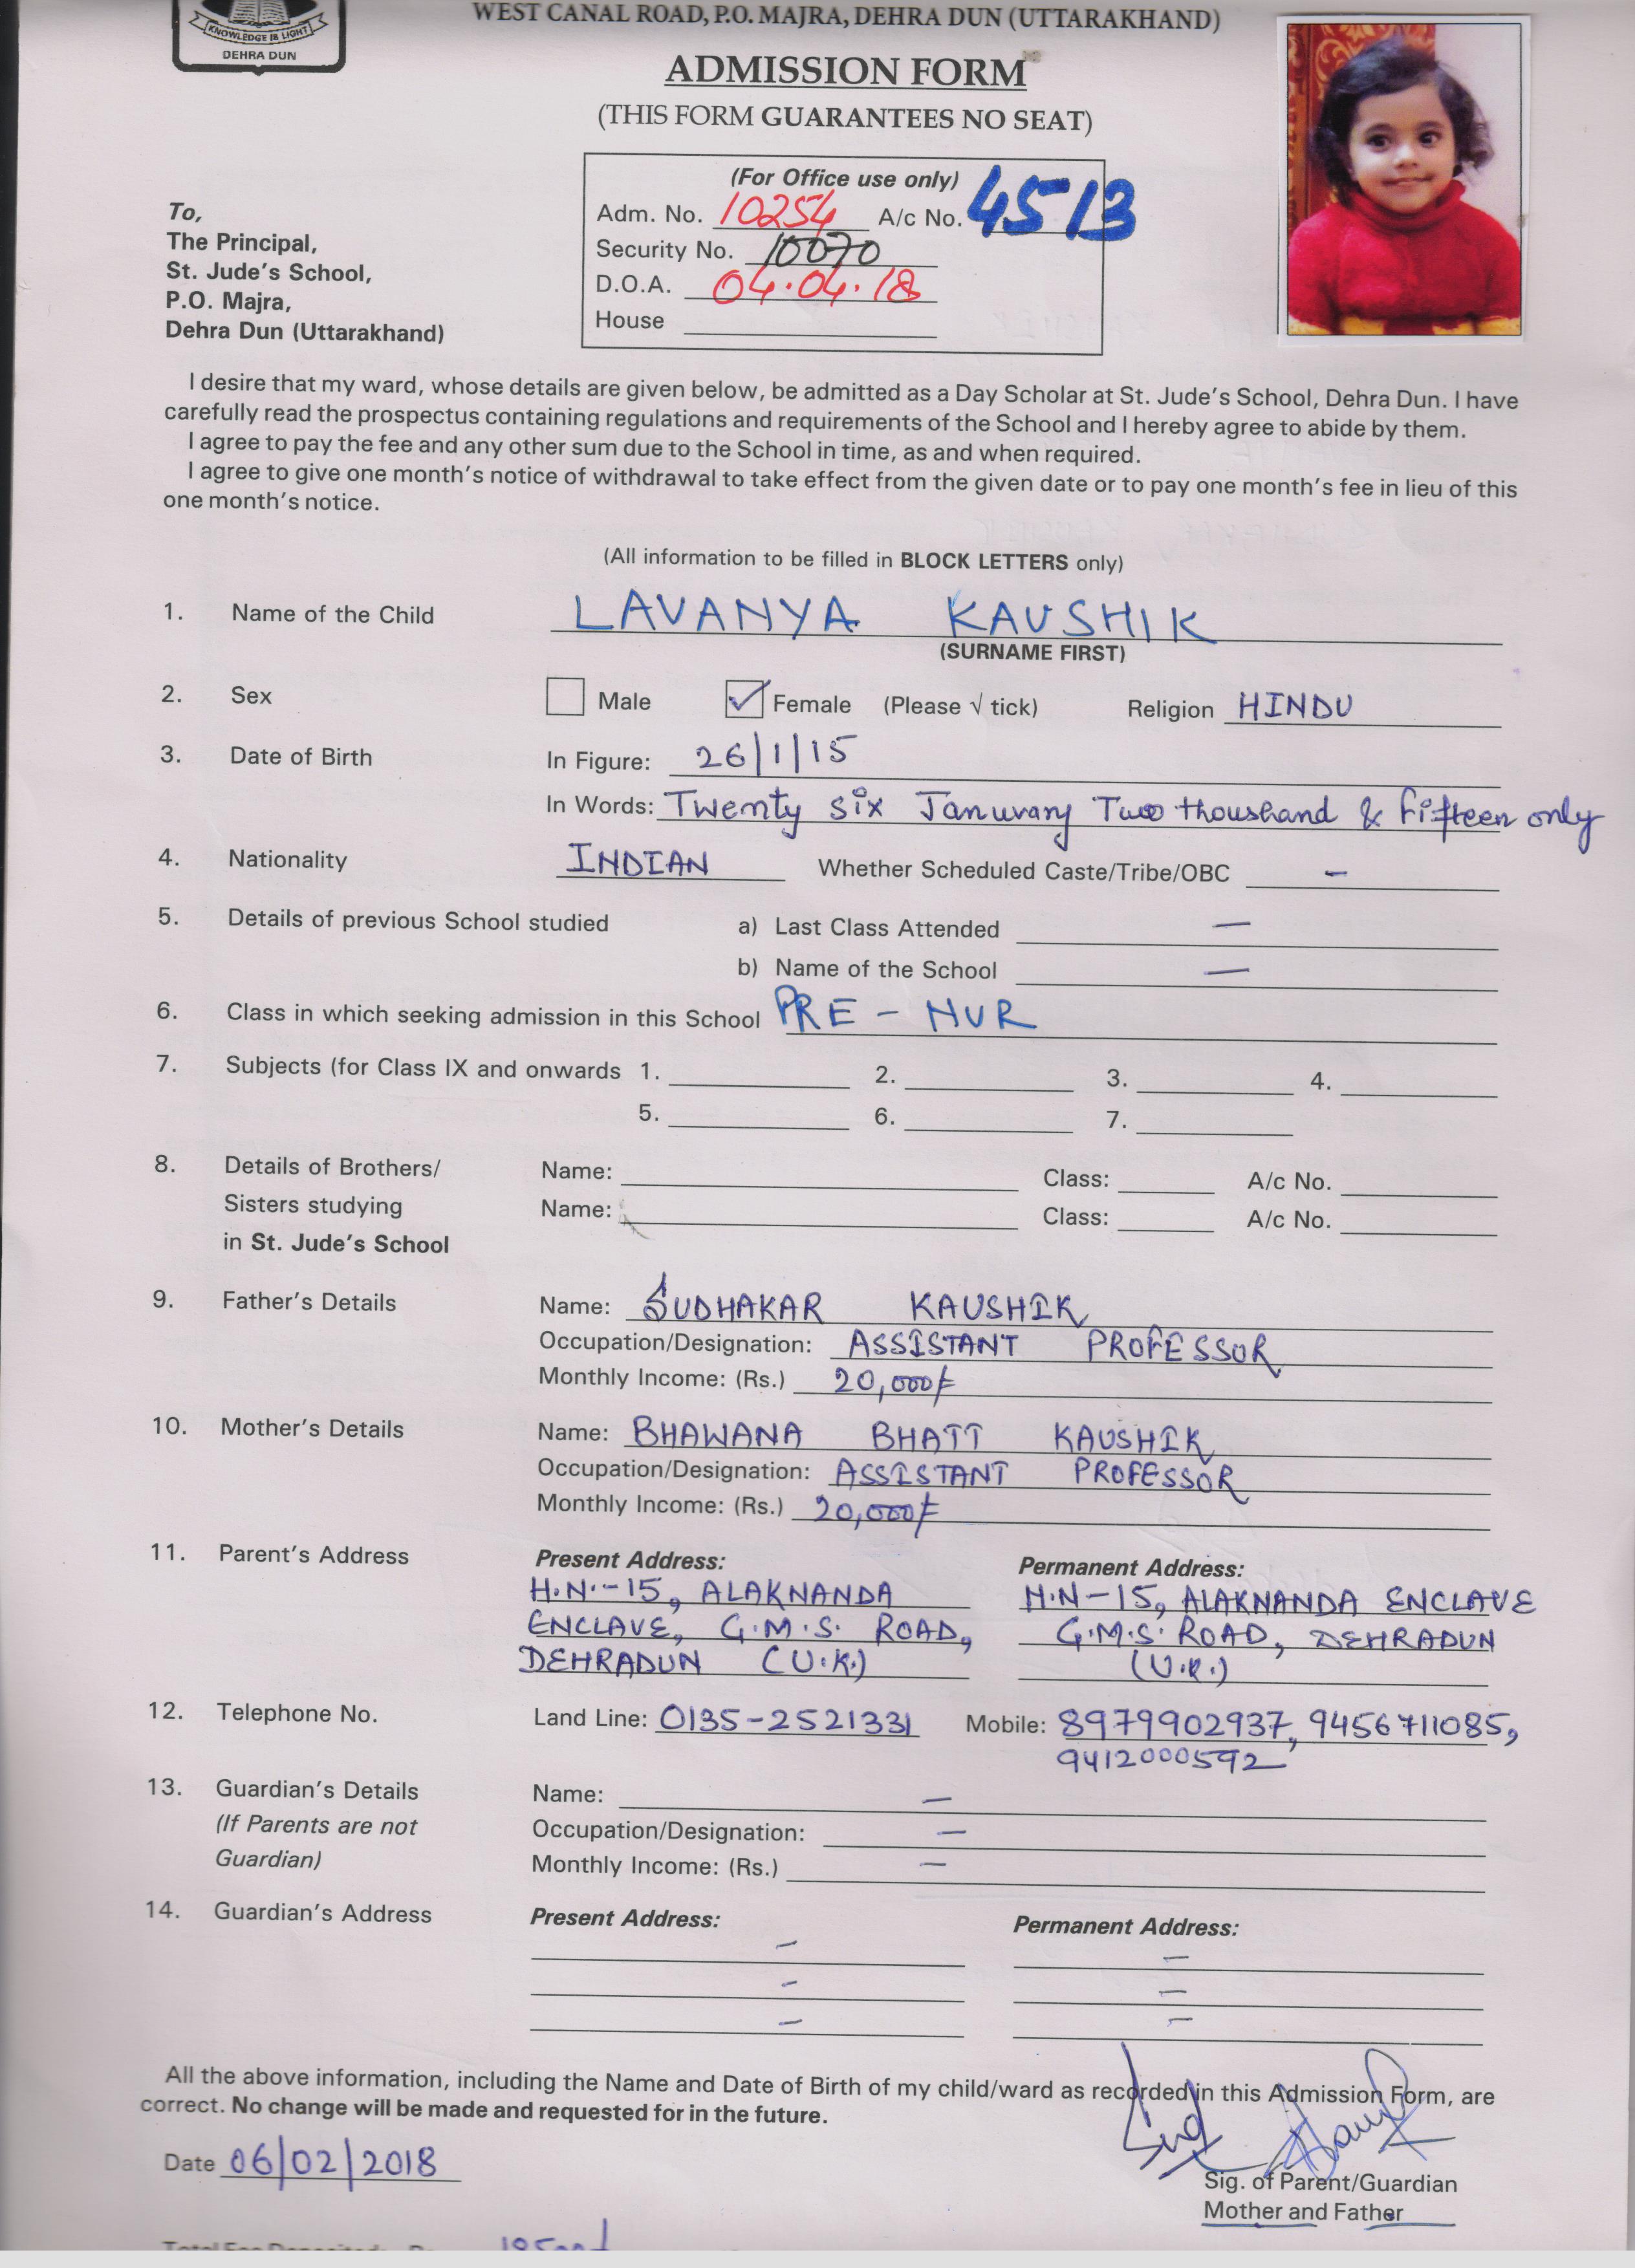 KNOWLEDGE IS LIGHT
DEHRA DUN
WEST CANAL ROAD, P.O. MAJRA, DEHRA DUN (UTTARAKHAND)
ADMISSION FORM
(THIS FORM GUARANTEES NO SEAT)
(For Office use only)
Adm. No. 10254 A/c No. 4513
Security No. 10070
D.O.A. 04.04.18
House
To,
The Principal,
St. Jude's School,
P.O. Majra,
Dehra Dun (Uttarakhand)
I desire that my ward, whose details are given below, be admitted as a Day Scholar at St. Jude's School, Dehra Dun. I have
carefully read the prospectus containing regulations and requirements of the School and I hereby agree to abide by them.
I agree to pay the fee and any other sum due to the School in time, as and when required.
I agree to give one month's notice of withdrawal to take effect from the given date or to pay one month's fee in lieu of this
one month's notice.
(All information to be filled in BLOCK LETTERS only)
1. Name of the Child LAVANYA KAUSHIK
(SURNAME FIRST)
2. Sex Male ✓ Female (Please √ tick) Religion HINDU
3. Date of Birth In Figure: 26/1/15
In Words: Twenty six Januvary Two thoushand & Fifteen only
4. Nationality INDIAN Whether Scheduled Caste/Tribe/OBC -
5. Details of previous School studied a) Last Class Attended -
b) Name of the School -
6. Class in which seeking admission in this School PRE - NUR
7. Subjects (for Class IX and onwards 1. 2. 3. 4.
5. 6. 7.
8. Details of Brothers/ Name: Class: A/c No.
Sisters studying Name: Class: A/c No.
in St. Jude's School
9. Father's Details Name: SUDHAKAR KAUSHIK
Occupation/Designation: ASSISTANT PROFESSOR
Monthly Income: (Rs.) 20,000/-
10. Mother's Details Name: BHAWANA BHATT KAUSHIK
Occupation/Designation: ASSISTANT PROFESSOR
Monthly Income: (Rs.) 20,000/-
11. Parent's Address Present Address: Permanent Address:
H.N.-15, ALAKNANDA H.N-15, ALAKNANDA ENCLAVE
ENCLAVE, G.M.S. ROAD, G.M.S. ROAD, DEHRADUN
DEHRADUN (U.K.) (U.K.)
12. Telephone No. Land Line: 0135-2521331 Mobile: 8979902937, 9456711085,
9412000592
13. Guardian's Details Name: -
(If Parents are not Occupation/Designation: -
Guardian) Monthly Income: (Rs.) -
14. Guardian's Address Present Address: Permanent Address:
- -
- -
- -
All the above information, including the Name and Date of Birth of my child/ward as recorded in this Admission Form, are
correct. No change will be made and requested for in the future.
Date 06/02/2018
Sig. of Parent/Guardian
Mother and Father